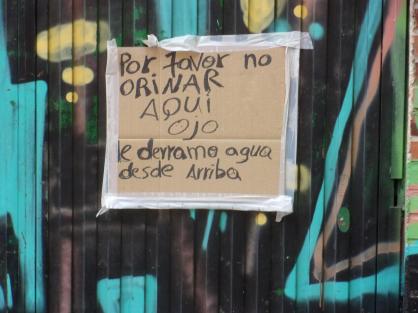 Por favor no
ORiNAR
AQUi
OJO
le derramo agua
desde Arriba